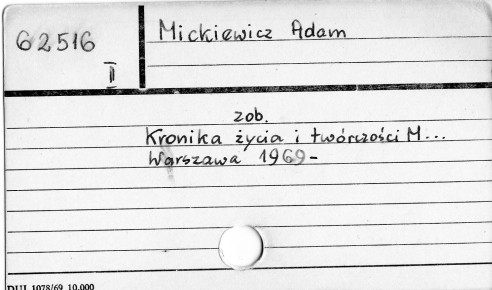 62516
II
Mickiewicz Adam
zob.
Kronika życia i twórczości M...
Warszawa 1969-
DUJ 1078/69 10.000